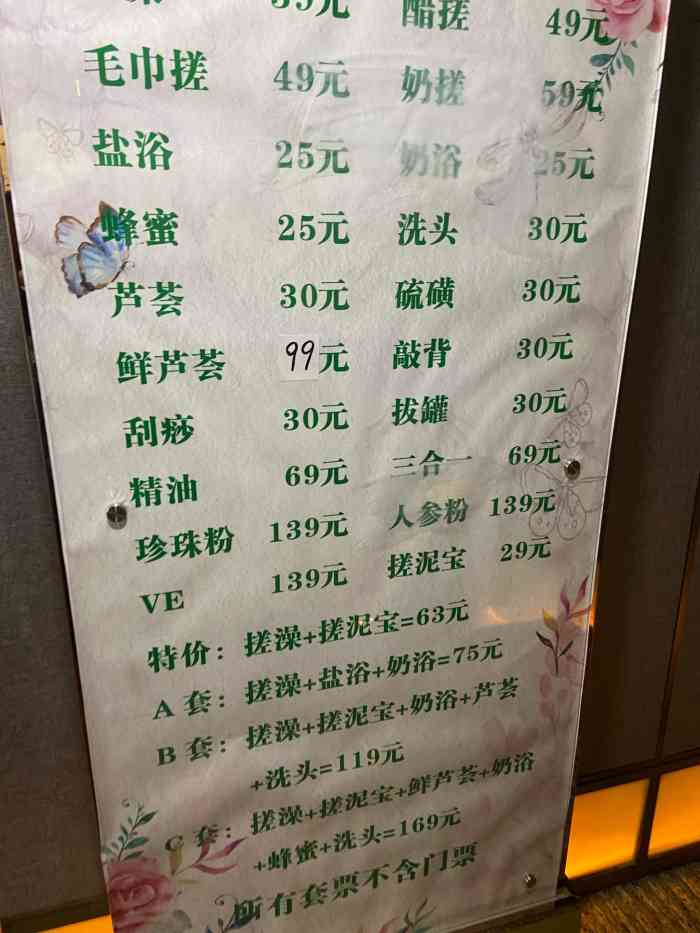 39元 醋搓 49元
毛巾搓 49元 奶搓 59元
盐浴 25元 奶浴 25元
蜂蜜 25元 洗头 30元
芦荟 30元 硫磺 30元
鲜芦荟 99元 敲背 30元
刮痧 30元 拔罐 30元
精油 69元 三合一 69元
珍珠粉 139元 人参粉 139元
VE 139元 搓泥宝 29元
特价：搓澡+搓泥宝=63元
A 套：搓澡+盐浴+奶浴=75元
B 套：搓澡+搓泥宝+奶浴+芦荟
+洗头=119元
C 套：搓澡+搓泥宝+鲜芦荟+奶浴
+蜂蜜+洗头=169元
所有套票不含门票